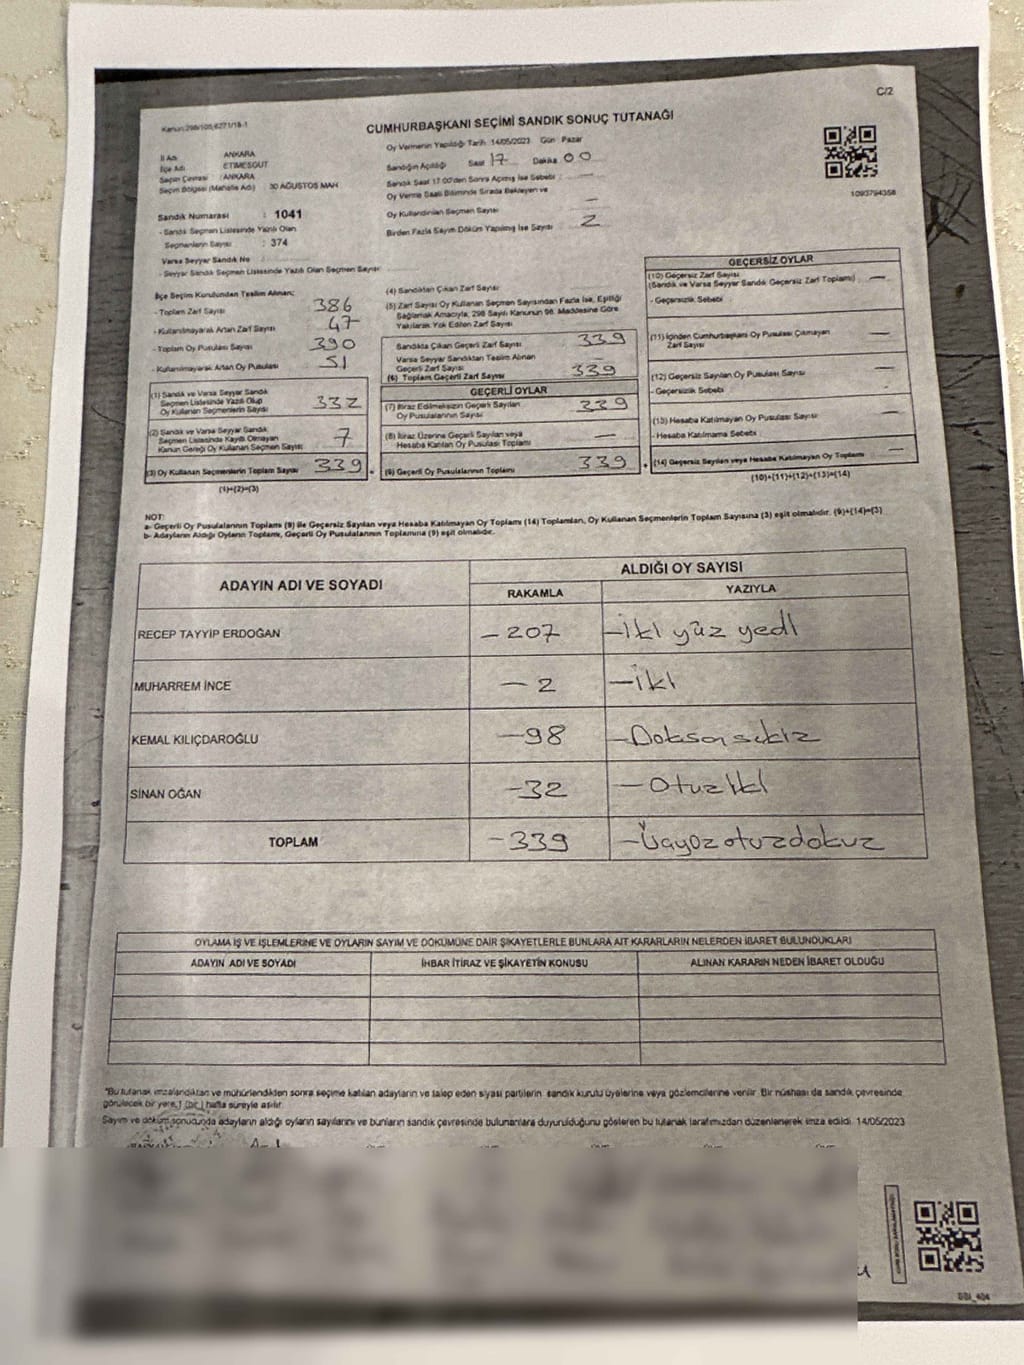 C/2
Kanun:298/105,6271/18-1
CUMHURBAŞKANI SEÇİMİ SANDIK SONUÇ TUTANAĞI
İl Adı ANKARA
İlçe Adı ETİMESGUT
Seçim Çevresi : ANKARA
Seçim Bölgesi (Mahalle Adı) 30 AĞUSTOS MAH
Sandık Numarası : 1041
- Sandık Seçmen Listesinde Yazılı Olan
Seçmenlerin Sayısı : 374
Varsa Seyyar Sandık No
- Seyyar Sandık Seçmen Listesinde Yazılı Olan Seçmen Sayısı
Oy Vermenin Yapıldığı Tarih 14/05/2023 Gün Pazar
Sandığın Açıldığı Saat 17 Dakika 00
Sandık Saat 17:00'den Sonra Açılmış İse Sebebi : —
Oy Verme Saati Bitiminde Sırada Bekleyen ve
Oy Kullandırılan Seçmen Sayısı —
Birden Fazla Sayım Döküm Yapılmış İse Sayısı 2
1093794358
İlçe Seçim Kurulundan Teslim Alınan;
- Toplam Zarf Sayısı 386
- Kullanılmayarak Artan Zarf Sayısı 47
- Toplam Oy Pusulası Sayısı 390
- Kullanılmayarak Artan Oy Pusulası 51
(1) Sandık ve Varsa Seyyar Sandık
Seçmen Listesinde Yazılı Olup
Oy Kullanan Seçmenlerin Sayısı 332
(2) Sandık ve Varsa Seyyar Sandık
Seçmen Listesinde Kayıtlı Olmayan
Kanun Gereği Oy Kullanan Seçmen Sayısı 7
(3) Oy Kullanan Seçmenlerin Toplam Sayısı 339
(1)+(2)=(3)
(4) Sandıktan Çıkan Zarf Sayısı
(5) Zarf Sayısı Oy Kullanan Seçmen Sayısından Fazla İse, Eşitliği
Sağlamak Amacıyla, 298 Sayılı Kanunun 98. Maddesine Göre
Yakılarak Yok Edilen Zarf Sayısı
Sandıkta Çıkan Geçerli Zarf Sayısı 339
Varsa Seyyar Sandıktan Teslim Alınan
Geçerli Zarf Sayısı —
(6) Toplam Geçerli Zarf Sayısı 339
GEÇERLİ OYLAR
(7) İtiraz Edilmeksizin Geçerli Sayılan
Oy Pusulalarının Sayısı 339
(8) İtiraz Üzerine Geçerli Sayılan veya
Hesaba Katılan Oy Pusulası Toplamı —
(9) Geçerli Oy Pusulalarının Toplamı 339
GEÇERSİZ OYLAR
(10) Geçersiz Zarf Sayısı
(Sandık ve Varsa Seyyar Sandık Geçersiz Zarf Toplamı) —
- Geçersizlik Sebebi
(11) İçinden Cumhurbaşkanı Oy Pusulası Çıkmayan
Zarf Sayısı —
(12) Geçersiz Sayılan Oy Pusulası Sayısı —
- Geçersizlik Sebebi
(13) Hesaba Katılmayan Oy Pusulası Sayısı
- Hesaba Katılmama Sebebi
(14) Geçersiz Sayılan veya Hesaba Katılmayan Oy Toplamı —
(10)+(11)+(12)+(13)=(14)
NOT:
a- Geçerli Oy Pusulalarının Toplamı (9) ile Geçersiz Sayılan veya Hesaba Katılmayan Oy Toplamı (14) Toplamları, Oy Kullanan Seçmenlerin Toplam Sayısına (3) eşit olmalıdır. (9)+(14)=(3)
b- Adayların Aldığı Oyların Toplamı, Geçerli Oy Pusulalarının Toplamına (9) eşit olmalıdır.
ADAYIN ADI VE SOYADI ALDIĞI OY SAYISI
RAKAMLA YAZIYLA
RECEP TAYYİP ERDOĞAN – 207 – İki yüz yedi
MUHARREM İNCE – 2 – iki
KEMAL KILIÇDAROĞLU – 98 – Doksan sekiz
SİNAN OĞAN – 32 – Otuz iki
TOPLAM – 339 – Üçyüz otuzdokuz
OYLAMA İŞ VE İŞLEMLERİNE VE OYLARIN SAYIM VE DÖKÜMÜNE DAİR ŞİKAYETLERLE BUNLARA AİT KARARLARIN NELERDEN İBARET BULUNDUKLARI
ADAYIN ADI VE SOYADI İHBAR İTİRAZ VE ŞİKAYETİN KONUSU ALINAN KARARIN NEDEN İBARET OLDUĞU
*Bu tutanak imzalandıktan ve mühürlendikten sonra seçime katılan adayların ve talep eden siyasi partilerin sandık kurulu üyelerine veya gözlemcilerine verilir. Bir nüshası da sandık çevresinde
görülecek bir yere,1 (bir ) hafta süreyle asılır.
Sayım ve döküm sonucunda adayların aldığı oyların sayılarını ve bunların sandık çevresinde bulunanlara duyurulduğunu gösteren bu tutanak tarafımızdan düzenlenerek imza edildi. 14/05/2023